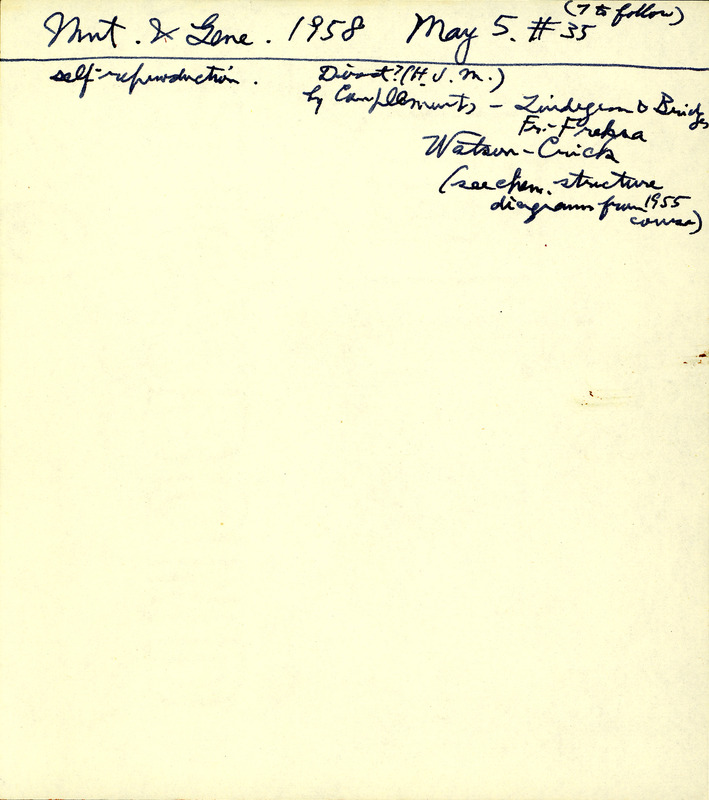 (7 to follow)
Mut. & Gene. 1958 May 5. #35
self-reproduction. Direct? (H.J.M.)
by Complements - Lindegren & Bridges
Fr.-Freksa
Watson-Crick
(see chem. structure
diagrams from 1955
course)